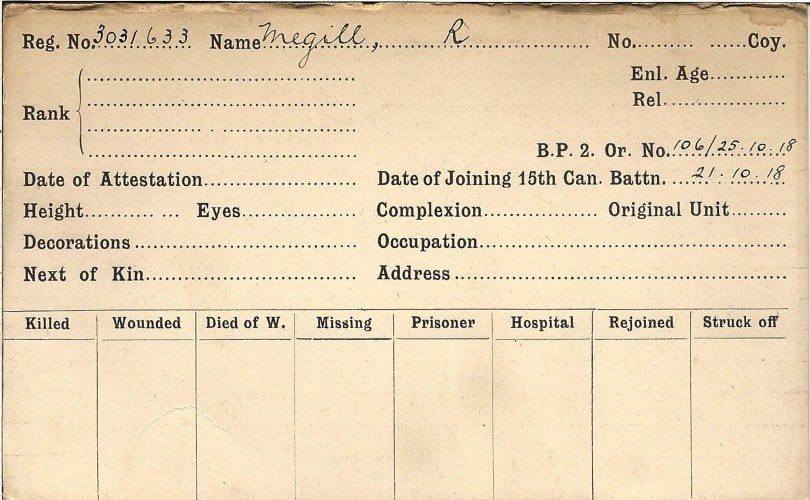 Reg. No. 3031633 Name Megill, R No. ......... ...... Coy.
Enl. Age
Rel.
Rank
B.P. 2. Or. No. 106/25.10.18
Date of Attestation Date of Joining 15th Can. Battn. 21.10.18
Height Eyes Complexion Original Unit
Decorations Occupation
Next of Kin Address
Killed Wounded Died of W. Missing Prisoner Hospital Rejoined Struck off